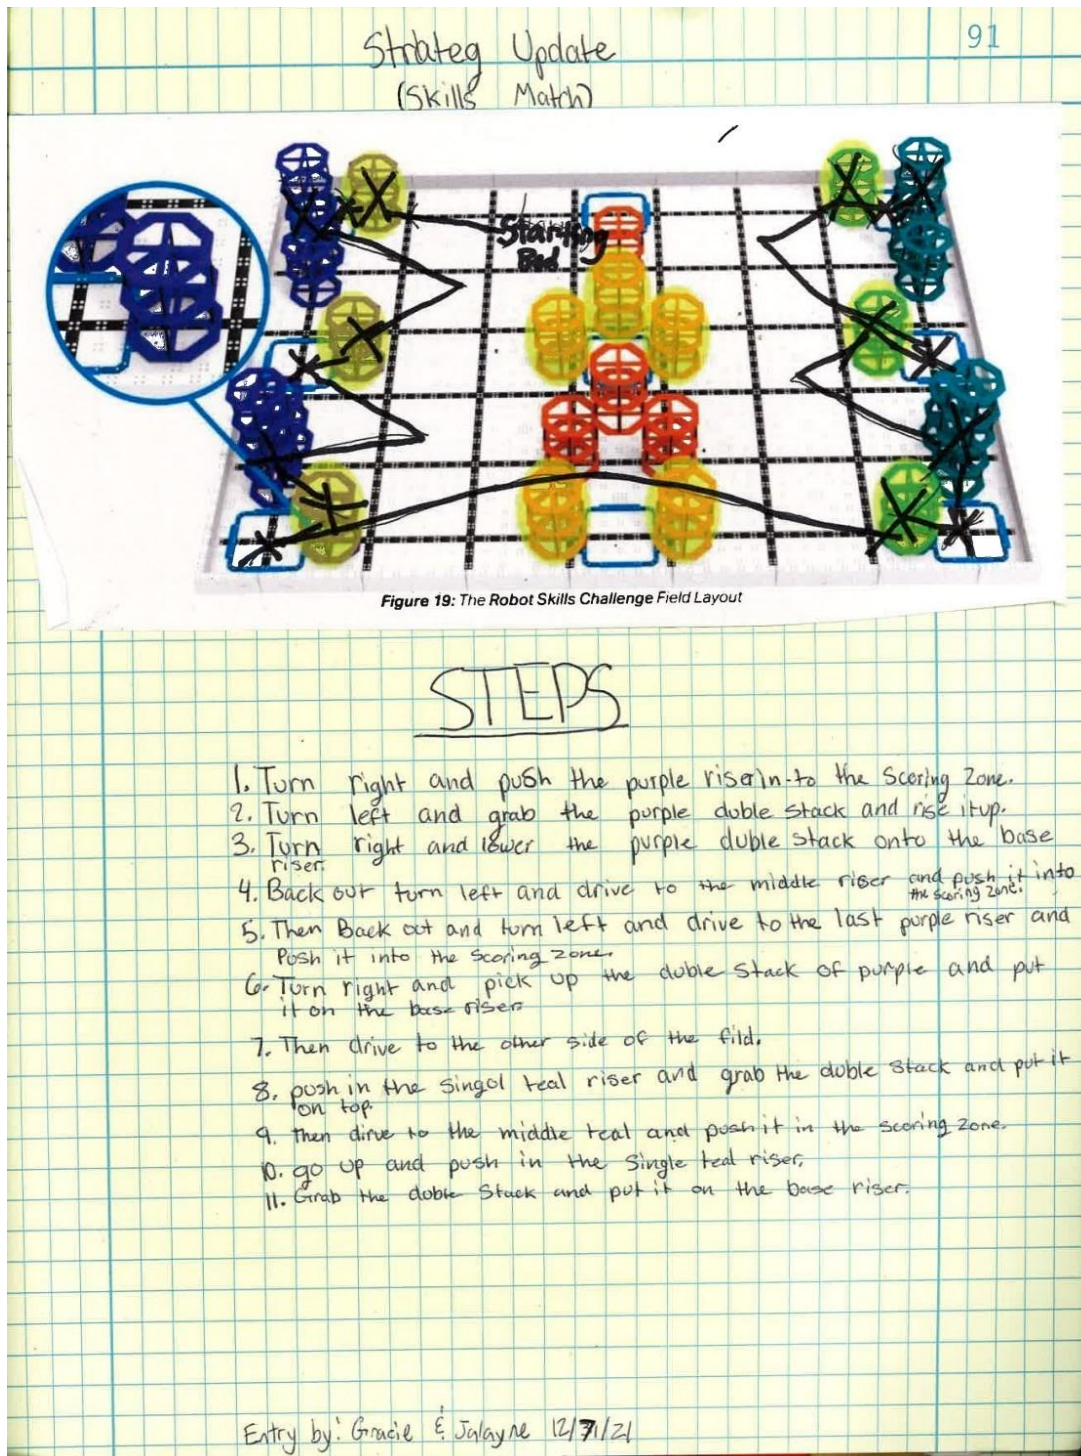 91
Strateg Update
(Skills Match)
Starting
Figure 19: The Robot Skills Challenge Field Layout
STEPS
1. Turn right and push the purple riser in-to the Scoring Zone.
2. Turn left and grab the purple duble stack and rise it up.
3. Turn right and lower the purple duble stack onto the base
riser.
4. Back out turn left and drive to the middle riser and push it into
the scoring zone.
5. Then Back out and turn left and drive to the last purple riser and
Push it into the scoring zone.
6. Turn right and pick up the duble stack of purple and put
it on the base riser.
7. Then drive to the other side of the fild.
8. push in the singol teal riser and grab the duble stack and put it
on top.
9. then dirve to the middle teal and push it in the scoring zone.
10. go up and push in the single teal riser.
11. Grab the doble stack and put it on the base riser.
Entry by: Gracie & Jalayne